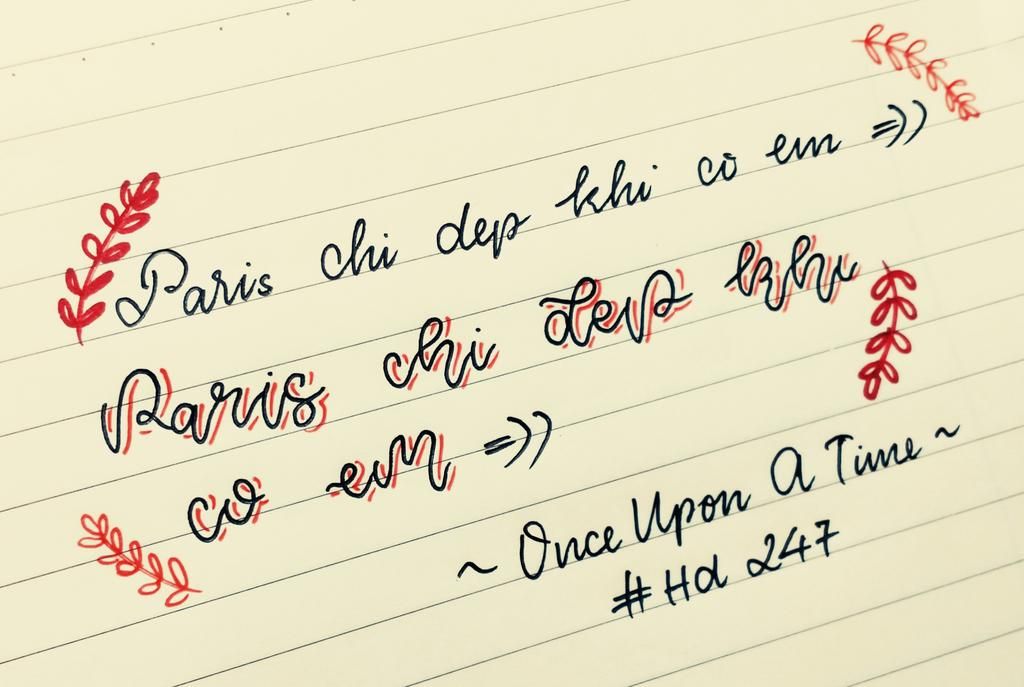 Paris chi dep khi co em =))
Paris chi dep khi
co em =))
~ Once Upon A Time ~
# Hd 247